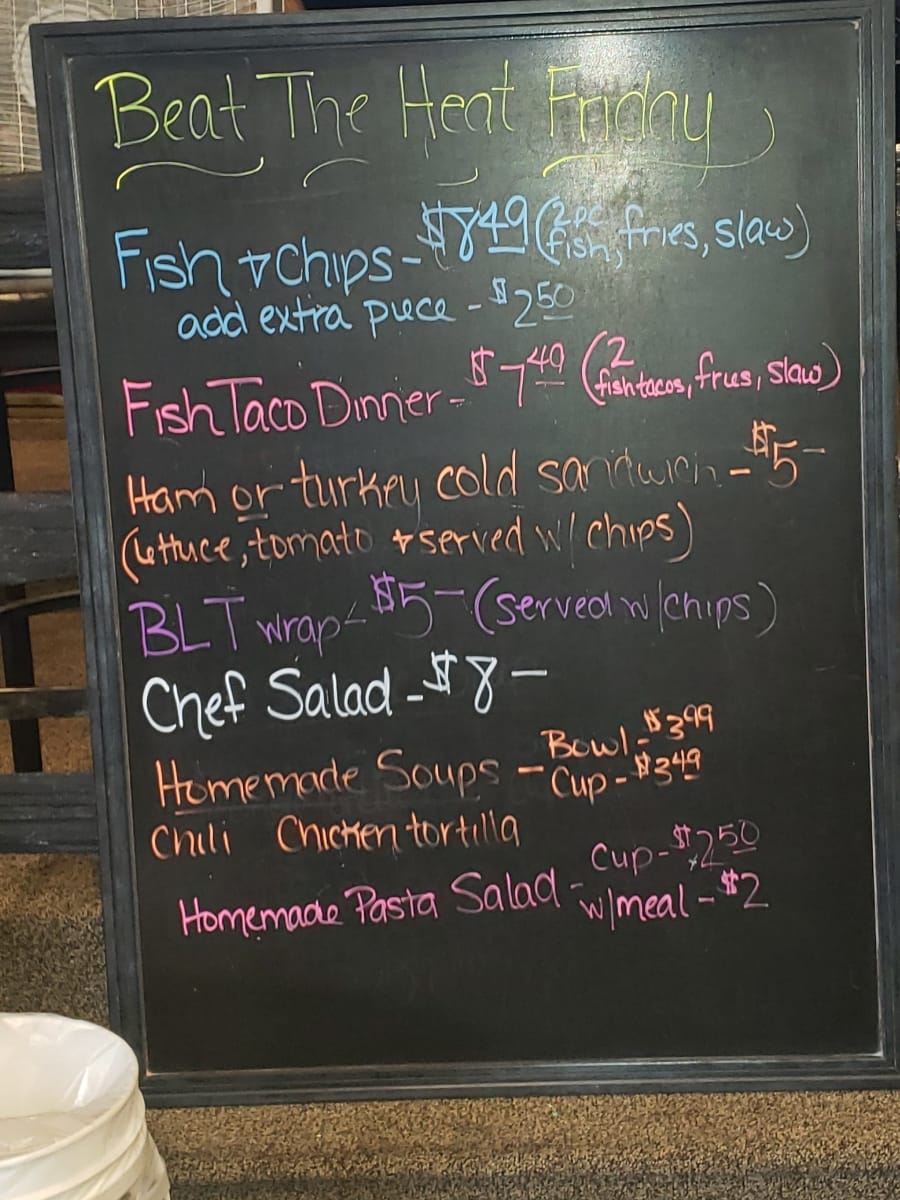 Beat The Heat Friday
Fish + Chips - $8.49 (2pc fish, fries, slaw)
add extra piece - $2.50
Fish Taco Dinner - $7.49 (2 fish tacos, fries, slaw)
Ham or turkey cold sandwich - $5-
(lettuce, tomato + served w/ chips)
BLT wrap - $5- (served w/chips)
Chef Salad - $8-
Homemade Soups - Bowl - $3.99
Cup - $3.49
Chili Chicken tortilla
Homemade Pasta Salad - Cup - $2.50
w/meal - $2